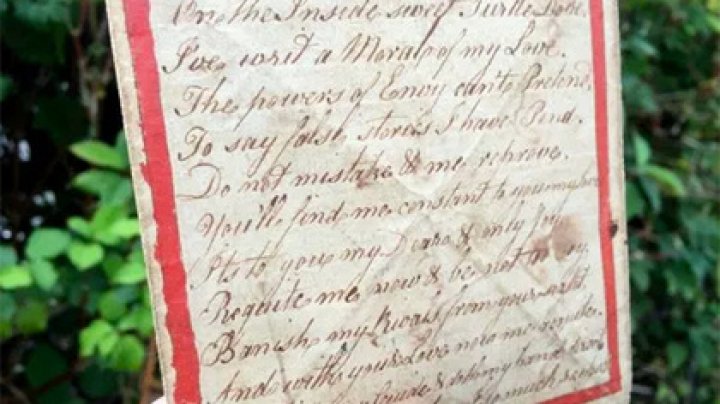 On the Inside sweet Turtle Dove
I've writ a Moral of my Love.
The powers of Envy can't Pretend,
To say false stories I have Pend.
Do not mistake & me reprove.
You'll find me constant to you my love
It's to you my Deare & only Joy
Requite me now & be not coy
Banish my Rivals from your sight
And with your Love now me
& my hand
so much